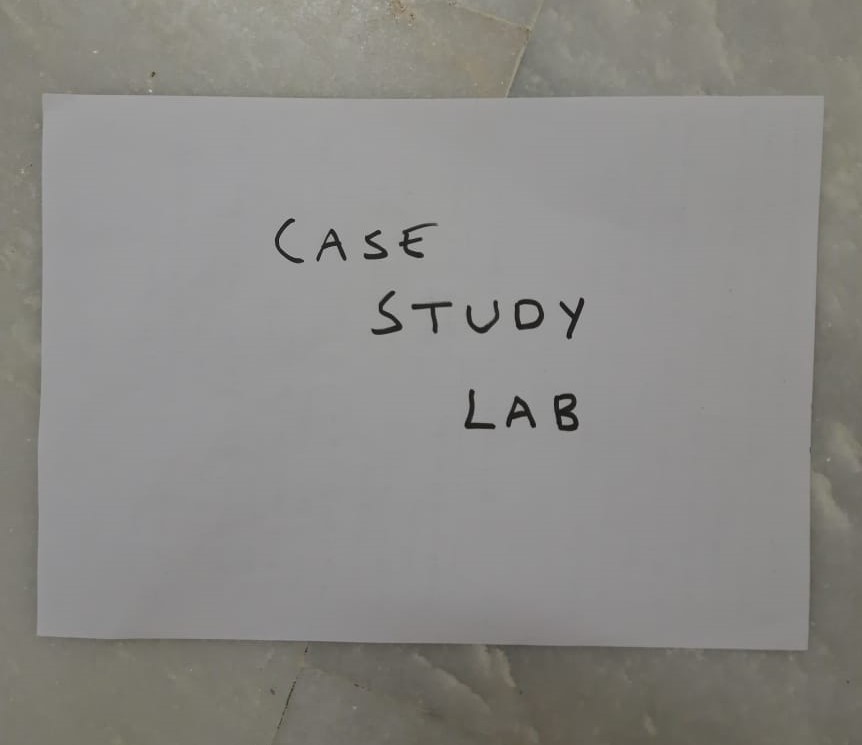 CASE
STUDY
LAB